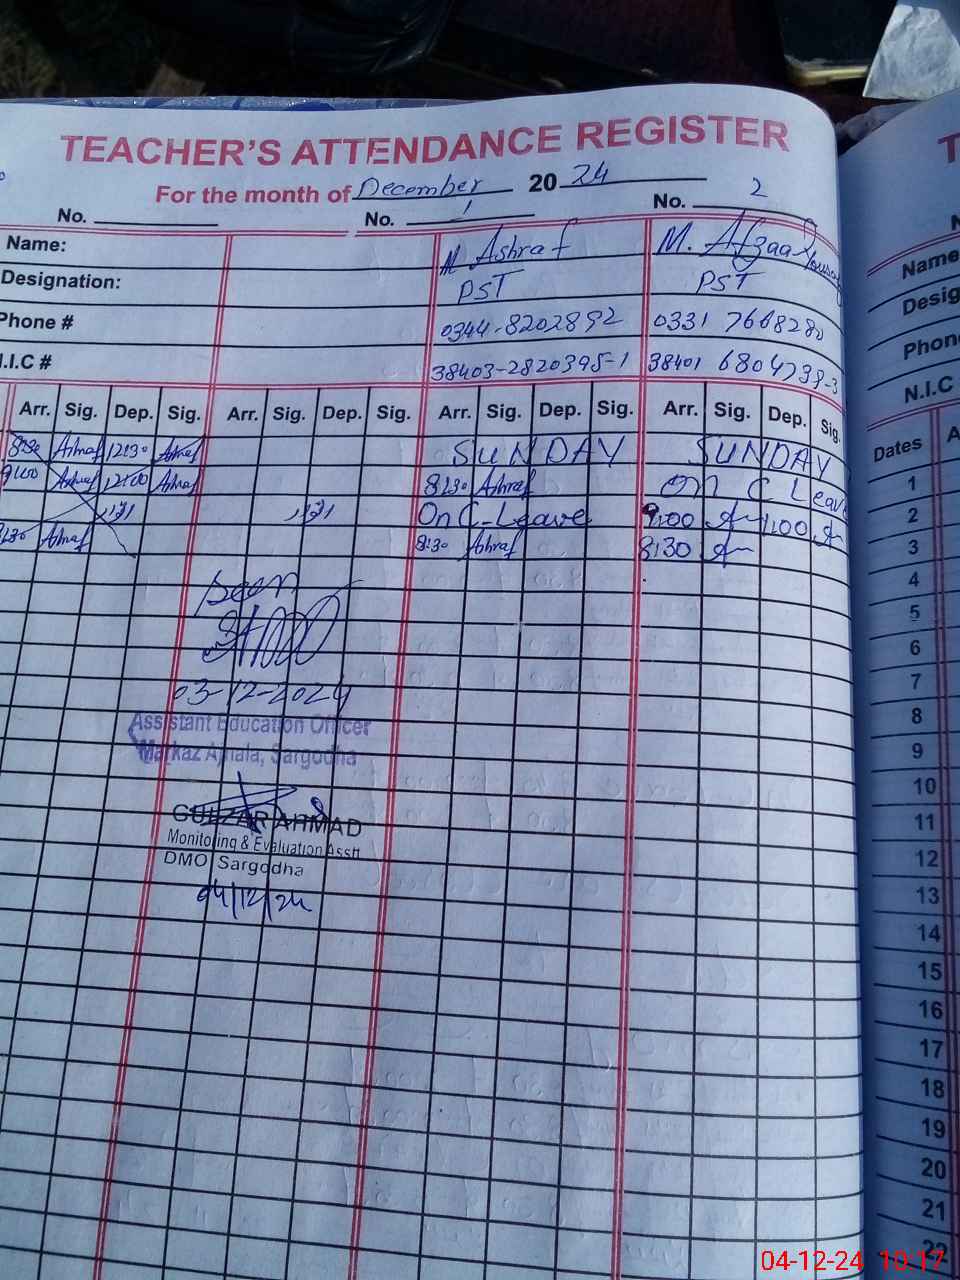 TEACHER'S ATTENDANCE REGISTER
For the month of December 20 24
No. No. 1 No. 2
Name: M Ashraf M. Afzaal
Designation: PST PST
Phone # 0344-8202892 0331
N.I.C # 38403-2820395-1 38401
Arr. Sig. Dep. Sig. Arr. Sig. Dep. Sig. Arr. Sig. Dep. Sig. Arr. Sig. Dep. Sig.
8:30 Ashraf 12:30 Ashraf SUNDAY SUNDAY
9:00 Ashraf 12:00 Ashraf 8:30 Ashraf On C Leave
On C-Leave 9:00 1:00
8:30 Ashraf 8:30 Ashraf 8:30
Seen
03-12-2024
Assistant Education Officer
Markaz Ajnala, Sargodha
GULZAR AHMAD
Monitoring & Evaluation Asstt
DMO Sargodha
04/12/24
T
Name
Desig
Phon
N.I.C
Dates A
1
2
3
4
5
6
7
8
9
10
11
12
13
14
15
16
17
18
19
20
21
22
04-12-24 10:17